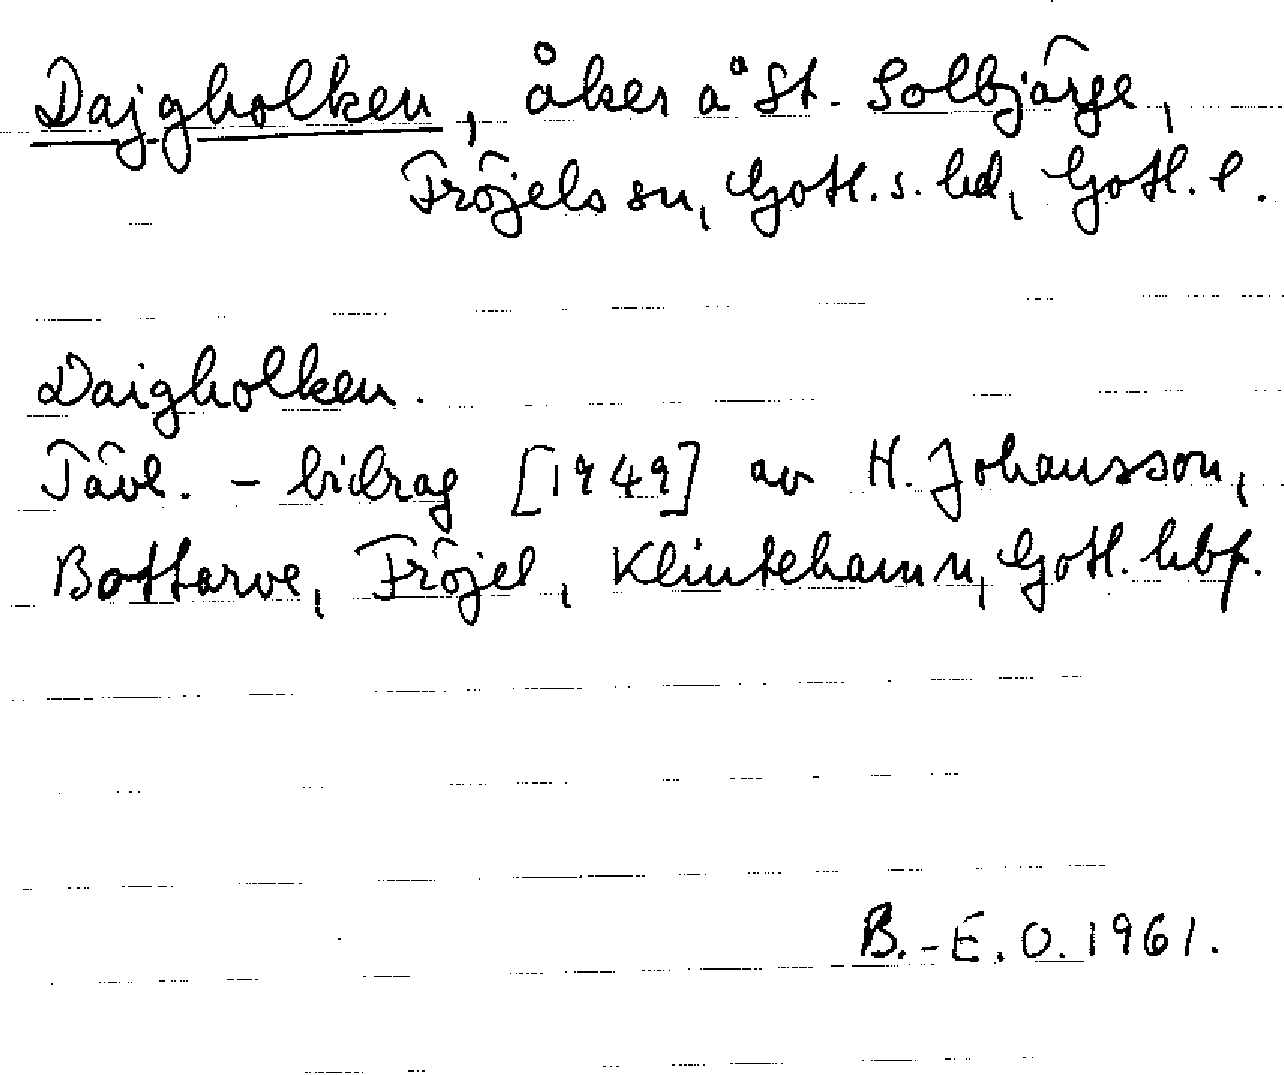 Dajgholken, åker å St. Solbjärge,
Fröjels sn, Gotl. s. hd, Gotl. l.
Daigholken.
Tävl. - bidrag [1949] av H. Johansson,
Bottarve, Fröjel, Klintehamn, Gotl. hbf.
B.-E. O. 1961.